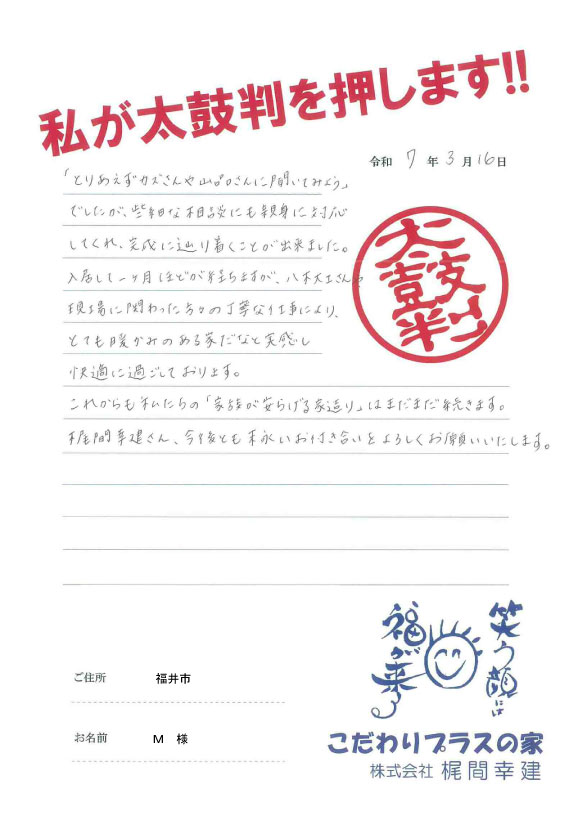 私が太鼓判を押します!!
令和 7 年 3 月 16 日
「とりあえずカズさんや山口さんに聞いてみよう」
でしたが、些細な相談にも親身に対応
してくれ、完成に辿り着くことが出来ました。
入居して一ヶ月ほどが経ちますが、八木大工さんや
現場に関わった方々の丁寧な仕事により、
とても暖かみのある家だなと実感し
快適に過ごしております。
これからも私たちの「家族が安らげる家造り」はまだまだ続きます。
梶間幸建さん、今後とも末永いお付き合いをよろしくお願いいたします。
太鼓判
笑う顔には
福が来る
ご住所 福井市
お名前 M 様
こだわりプラスの家
株式会社 梶間幸建